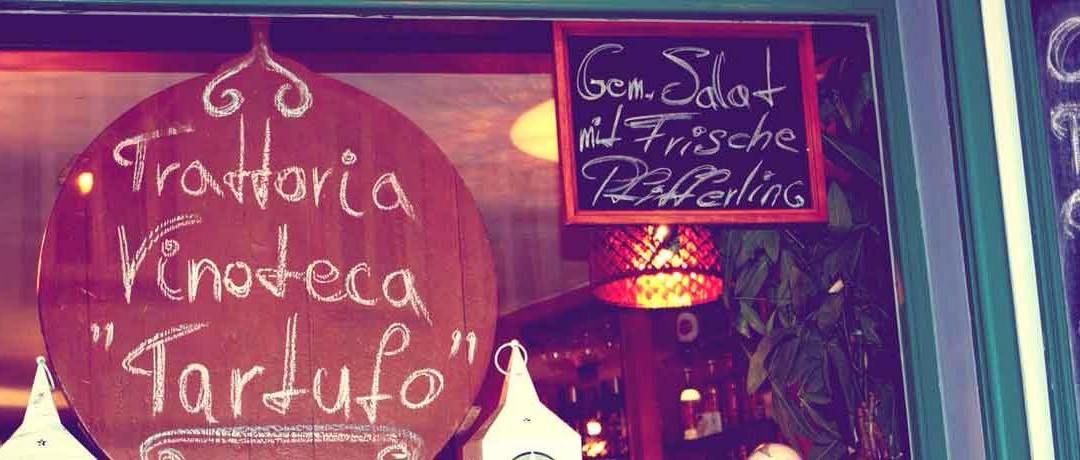 Trattoria
Vinoteca
"Tartufo"
Gem. Salat
mit Frische
Pfifferling